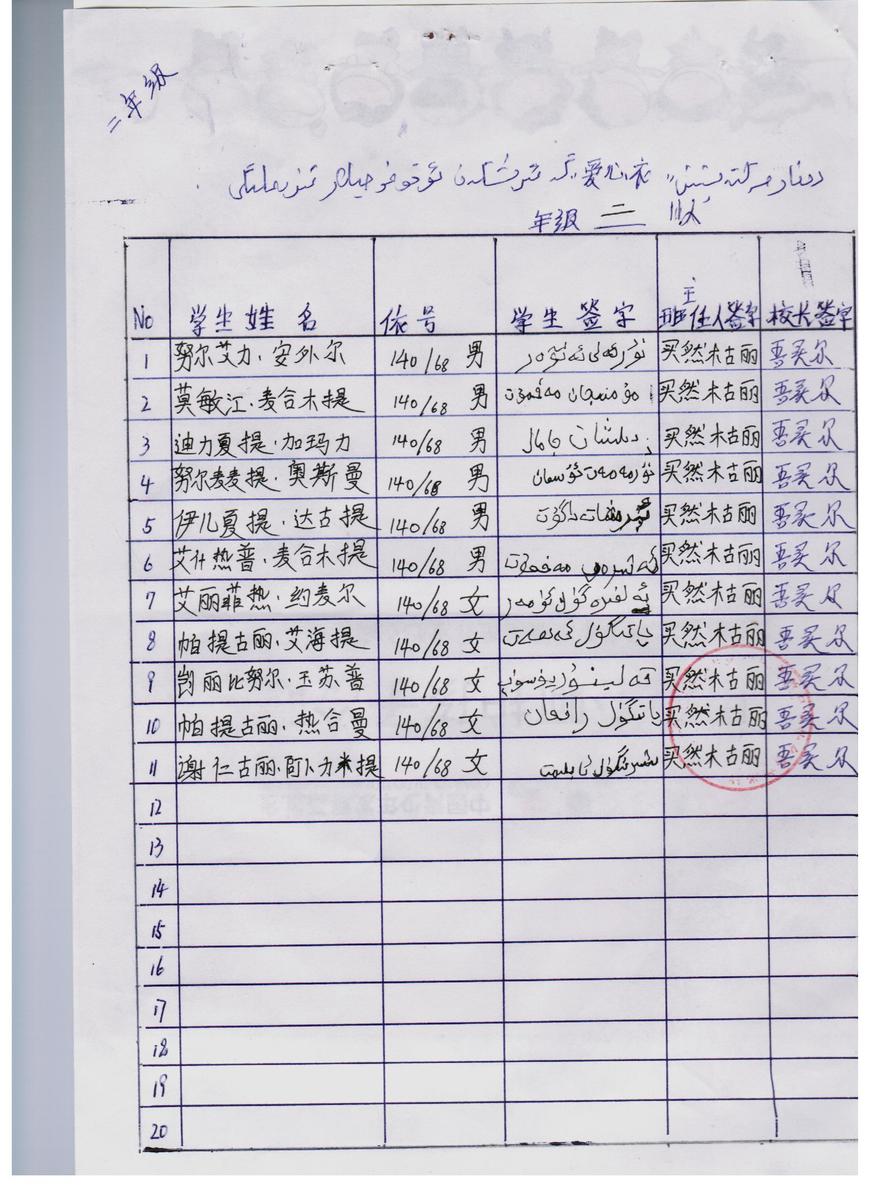 二年级
爱心衣
年级 二
No 学生姓名 依号 学生签字 班主任人签字 校长签字
1 努尔艾力·安外尔 140/68 男 نۇرئەلى ئەنۋەر 买然木古丽 吾买尔
2 莫敏江·麦合木提 140/68 男 مۆمىنجان مەخمۇت 买然木古丽 吾买尔
3 迪力夏提·加玛力 140/68 男 دىلشات جامال 买然木古丽 吾买尔
4 努尔麦麦提·奥斯曼 140/68 男 نۇرمەمەت ئوسمان 买然木古丽 吾买尔
5 伊儿夏提·达古提 140/68 男 买然木古丽 吾买尔
6 艾什热普·麦合木提 140/68 男 买然木古丽 吾买尔
7 艾丽菲热·约麦尔 140/68 女 买然木古丽 吾买尔
8 帕提古丽·艾海提 140/68 女 پاتىگۈل ئەھەت 买然木古丽 吾买尔
9 凯丽比努尔·玉苏普 140/68 女 买然木古丽 吾买尔
10 帕提古丽·热合曼 140/68 女 پاتىگۈل 买然木古丽 吾买尔
11 谢仁古丽·阿卜力米提 140/68 女 买然木古丽 吾买尔
12
13
14
15
16
17
18
19
20